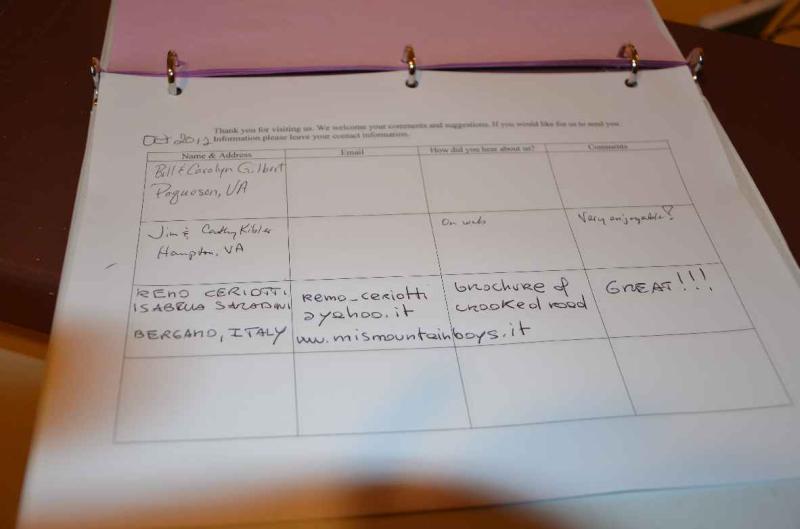 Thank you for visiting us. We welcome your comments and suggestions. If you would like for us to send you
Oct 2012 Information please leave your contact information.
Name & Address Email How did you hear about us? Comments
Bill & Carolyn Gilbert
Poquoson, VA
Jim & Cathy Kibler On web Very enjoyable!
Hampton, VA
REMO CERIOTTI remo_ceriotti brochure of GREAT!!!
ISABELLA @yahoo.it crooked road
BERGAMO, ITALY www.mismountainboys.it